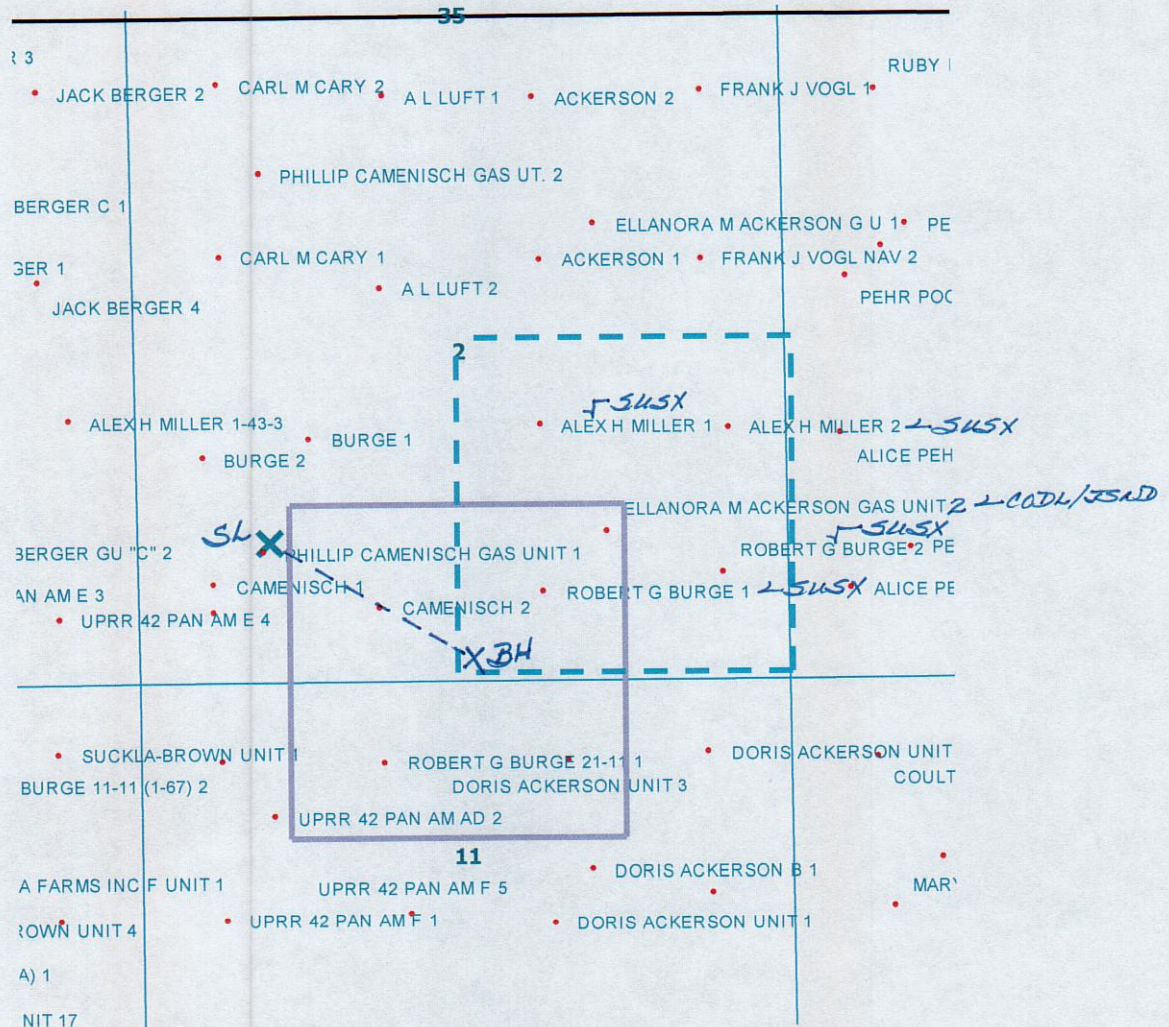 35
R 3
RUBY
JACK BERGER 2
CARL M CARY 2
A L LUFT 1
ACKERSON 2
FRANK J VOGL 1
PHILLIP CAMENISCH GAS UT. 2
BERGER C 1
ELLANORA M ACKERSON G U 1
PE
GER 1
CARL M CARY 1
ACKERSON 1
FRANK J VOGL NAV 2
JACK BERGER 4
A L LUFT 2
PEHR POC
2
SUSX
ALEX H MILLER 1-43-3
BURGE 1
ALEX H MILLER 1
ALEX H MILLER 2
SUSX
BURGE 2
ALICE PEH
ELLANORA M ACKERSON GAS UNIT 2
CODL/JSND
SL
SUSX
BERGER GU "C" 2
PHILLIP CAMENISCH GAS UNIT 1
ROBERT G BURGE 2
PE
AN AM E 3
CAMENISCH 1
ROBERT G BURGE 1
SUSX
ALICE PE
UPRR 42 PAN AM E 4
CAMENISCH 2
X BH
SUCKLA-BROWN UNIT 1
ROBERT G BURGE 21-11 1
DORIS ACKERSON UNIT
BURGE 11-11 (1-67) 2
DORIS ACKERSON UNIT 3
COULT
UPRR 42 PAN AM AD 2
11
A FARMS INC F UNIT 1
UPRR 42 PAN AM F 5
DORIS ACKERSON B 1
MARY
ROWN UNIT 4
UPRR 42 PAN AM F 1
DORIS ACKERSON UNIT 1
A) 1
NIT 17